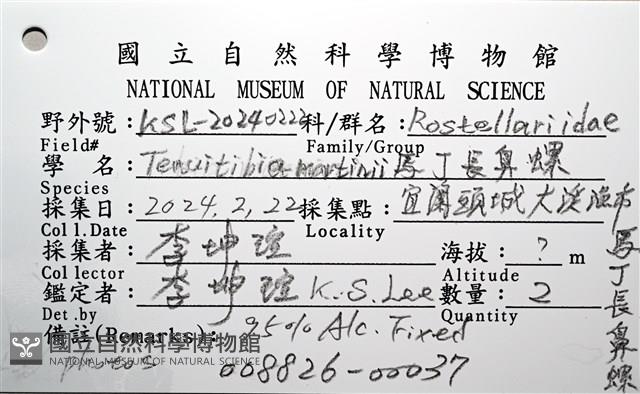 國立自然科學博物館
NATIONAL MUSEUM OF NATURAL SCIENCE
野外號：KSL-20240222 科/群名：Rostellariidae
Field# Family/Group
學 名：Tenuitibia martinii 馬丁長鼻螺
Species
採集日：2024.2.22 採集點：宜蘭頭城大溪漁市
Coll.Date Locality
採集者：李坤瑄 海拔：？m
Collector Altitude
鑑定者：李坤瑄 K.S.Lee 數量：2
Det.by Quantity
備註(Remarks)：95% Alc. Fixed
008826-00037
馬丁長鼻螺
國立自然科學博物館
NATIONAL MUSEUM OF NATURAL SCIENCE